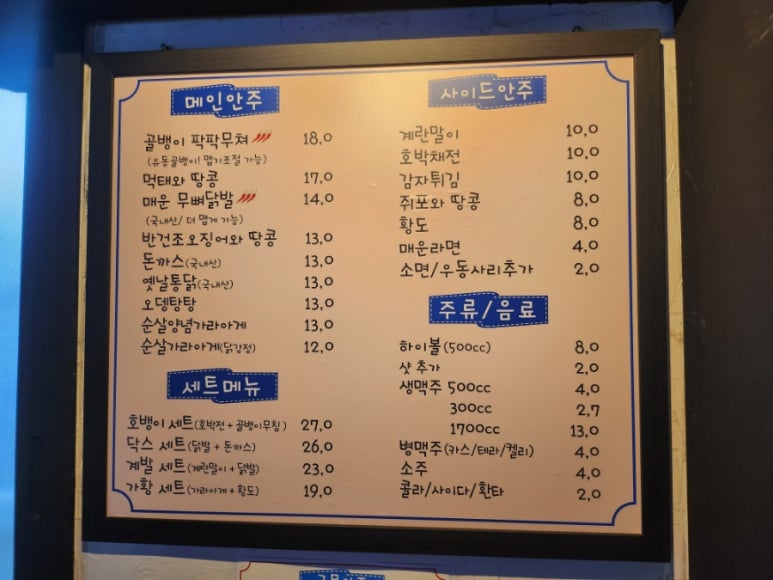 메인안주
골뱅이 팍팍무쳐 18,0
(유동골뱅이! 맵기조절 가능)
먹태와 땅콩 17,0
매운 무뼈닭발 14,0
(국내산/ 더 맵게 가능)
반건조오징어와 땅콩 13,0
돈까스(국내산) 13,0
옛날통닭(국내산) 13,0
오뎅탕탕 13,0
순살양념가라아게 13,0
순살가라아게(닭강정) 12,0
세트메뉴
호뱅이 세트(호박전+골뱅이무침) 27,0
닥스 세트(닭발 + 돈까스) 26,0
계발 세트(계란말이+닭발) 23,0
가황 세트(가라아게+황도) 19,0
사이드안주
계란말이 10,0
호박채전 10,0
감자튀김 10,0
쥐포와 땅콩 8,0
황도 8,0
매운라면 4,0
소면/우동사리추가 2,0
주류/음료
하이볼(500cc) 8,0
샷 추가 2,0
생맥주 500cc 4,0
300cc 2,7
1700cc 13,0
병맥주(카스/테라/켈리) 4,0
소주 4,0
콜라/사이다/환타 2,0